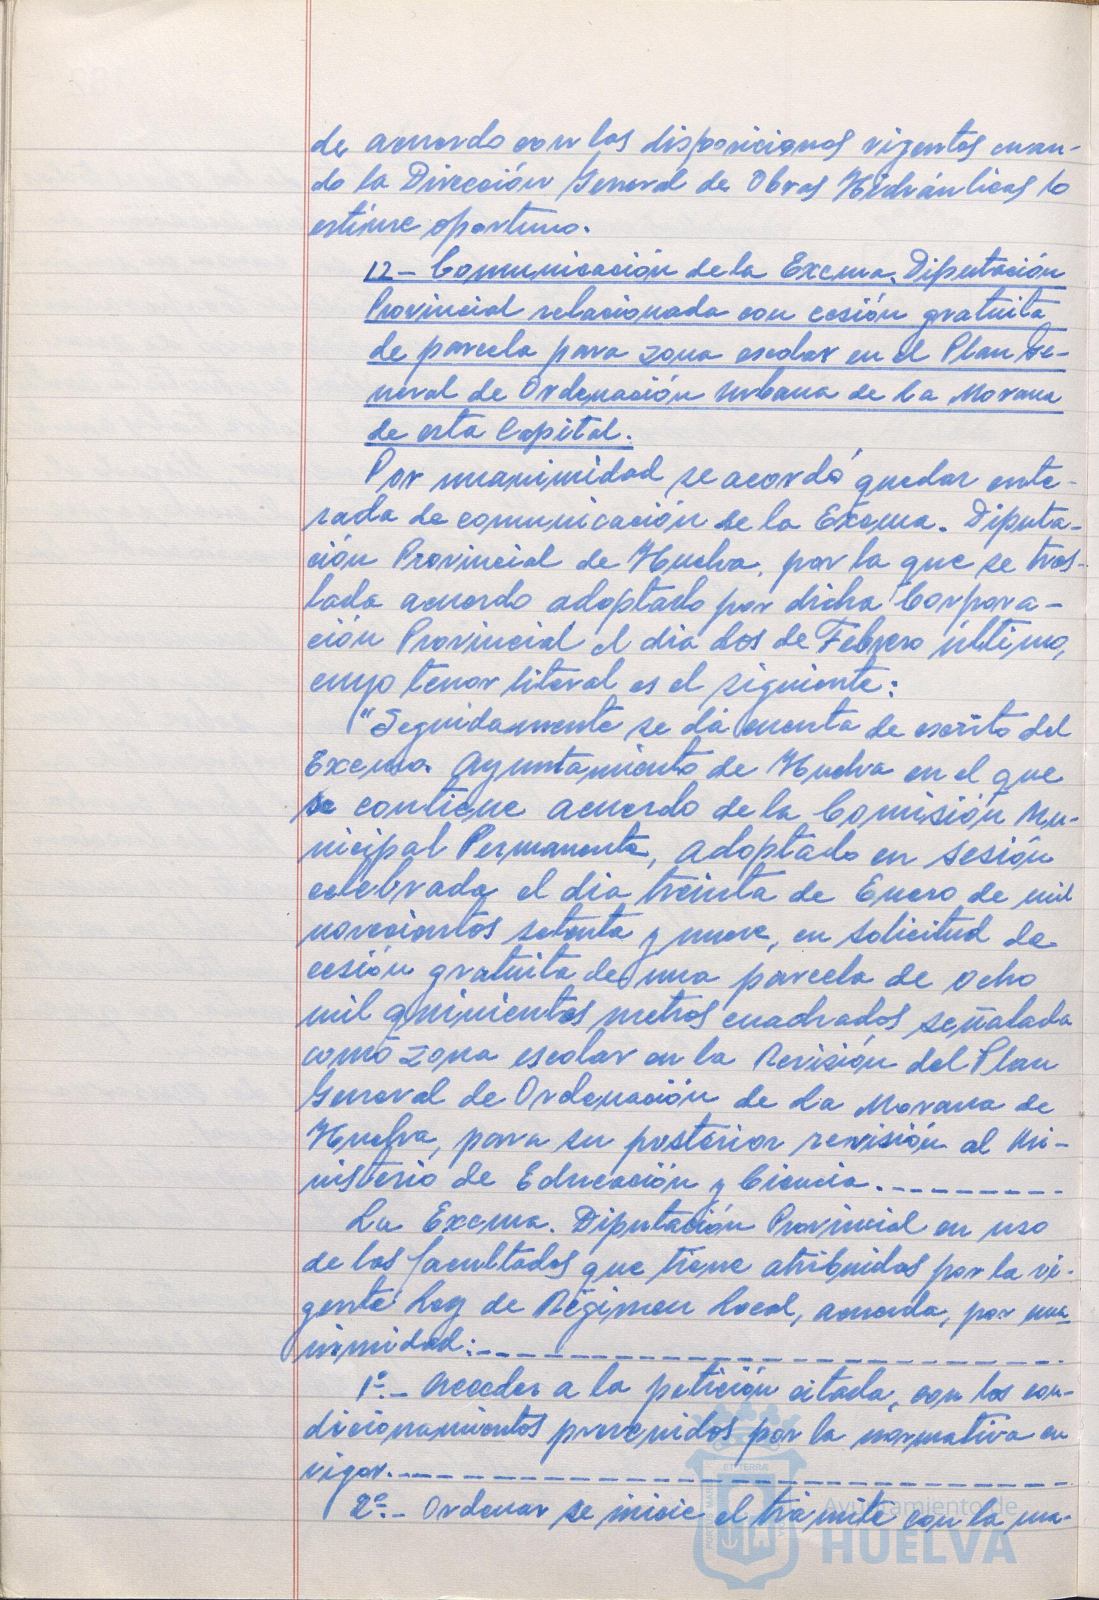 de acuerdo con las disposiciones vigentes cuan-
do la Dirección General de Obras Hidráulicas lo
estime oportuno.
12 - Comunicación de la Excma. Diputación
Provincial relacionada con cesión gratuita
de parcela para zona escolar en el Plan Ge-
neral de Ordenación Urbana de la Morana
de esta Capital.
Por unanimidad se acordó quedar ente-
rada de comunicación de la Excma. Diputa-
ción Provincial de Huelva, por la que se tras-
lada acuerdo adoptado por dicha Corpora-
ción Provincial el dia dos de Febrero último,
cuyo tenor literal es el siguiente:
"Seguidamente se dá cuenta de escrito del
Excmo. Ayuntamiento de Huelva en el que
se contiene acuerdo de la Comisión Mu-
nicipal Permanente, adoptado en sesión
celebrada el dia treinta de Enero de mil
novecientos setenta y nueve, en solicitud de
cesión gratuita de una parcela de ocho
mil quinientos metros cuadrados señalada
como zona escolar en la Revisión del Plan
General de Ordenación de La Morana de
Huelva, para su posterior revisión al Mi-
nisterio de Educación y Ciencia.----------
La Excma. Diputación Provincial en uso
de las facultades que tiene atribuidas por la vi-
gente Ley de Régimen Local, acuerda, por una
nimidad:--------------------
1º.- Acceder a la petición citada, con los con-
dicionamientos prevenidos por la normativa en
vigor.--------------------
2º.- Ordenar se inicie el trámite con la ma-
Ayuntamiento de
HUELVA